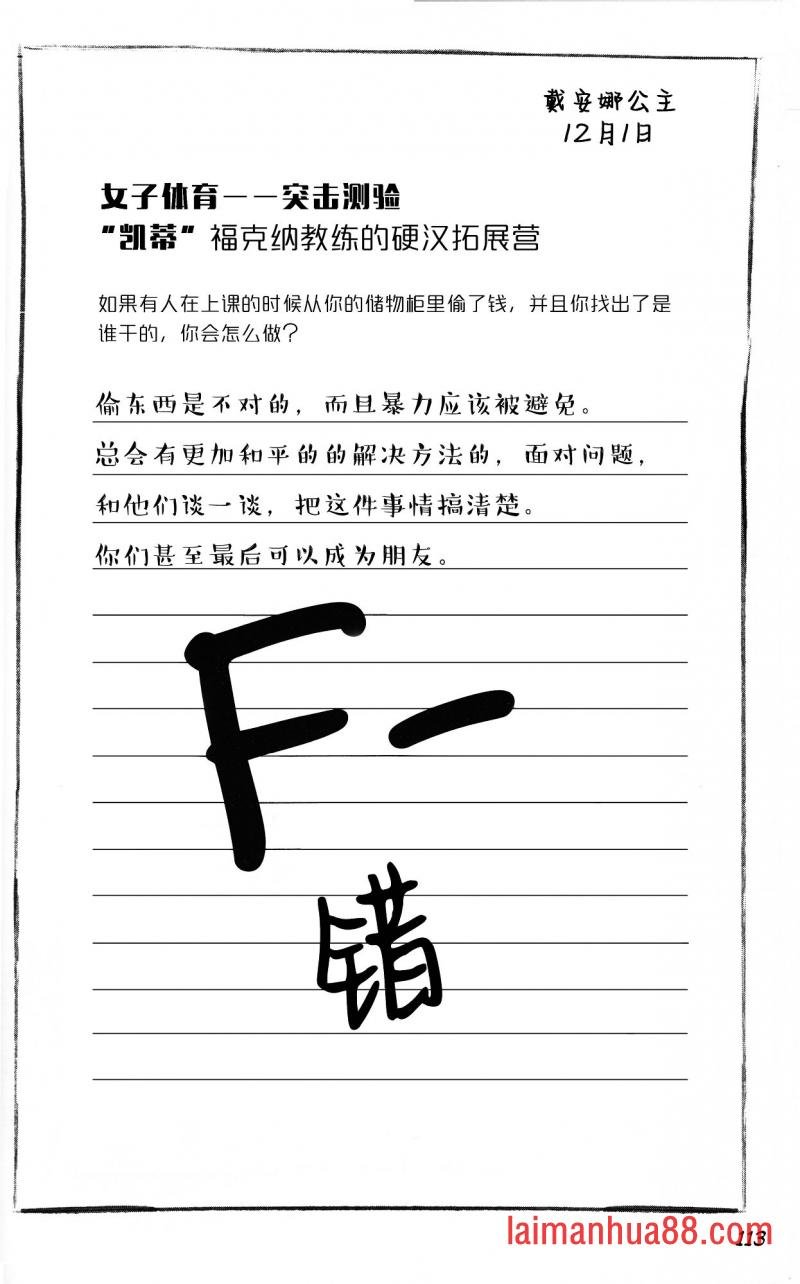 戴安娜公主
12月1日
女子体育——突击测验
“凯蒂”福克纳教练的硬汉拓展营
如果有人在上课的时候从你的储物柜里偷了钱，并且你找出了是
谁干的，你会怎么做？
偷东西是不对的，而且暴力应该被避免。
总会有更加和平的的解决方法的，面对问题，
和他们谈一谈，把这件事情搞清楚。
你们甚至最后可以成为朋友。
F-
错
laimanhua88.com
113